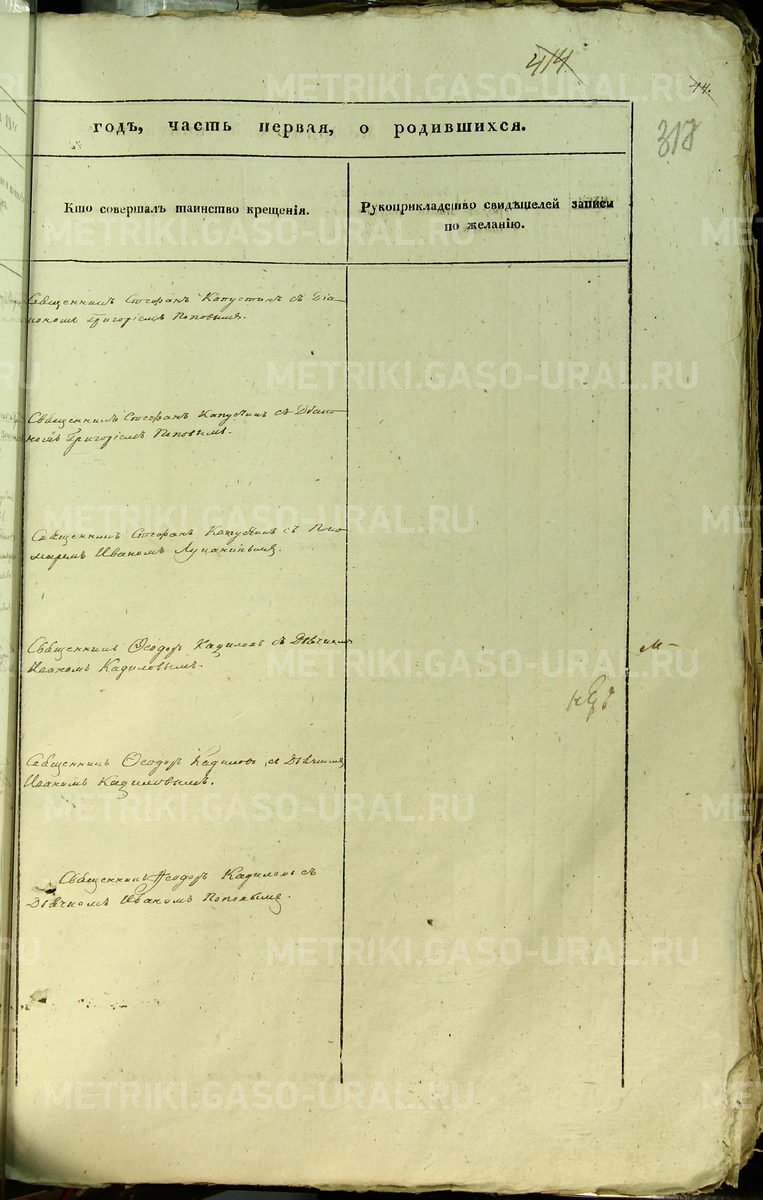 414.
44.
318
годъ, часть первая, о родившихся.
Кто совершалъ таинство крещенія.
Рукоприкладство свидѣтелей записи
по желанію.
Священникъ Стефанъ Капустинъ съ Діа-
кономъ Григоріемъ Поповымъ.
Священникъ Стефанъ Капустинъ съ Діако-
номъ Григоріемъ Поповымъ.
Священникъ Стефанъ Капустинъ съ Поно-
маремъ Иваномъ Лупанинымъ.
Священникъ Ѳеодоръ Кадиловъ съ Дьячкомъ
Иваномъ Кадиловымъ.
м-
Священникъ Ѳеодоръ Кадиловъ съ Дьячкомъ
Иваномъ Кадиловымъ.
Священникъ Ѳеодоръ Кадиловъ съ
Дьячкомъ Иваномъ Поповымъ.
METRIKI.GASO-URAL.RU